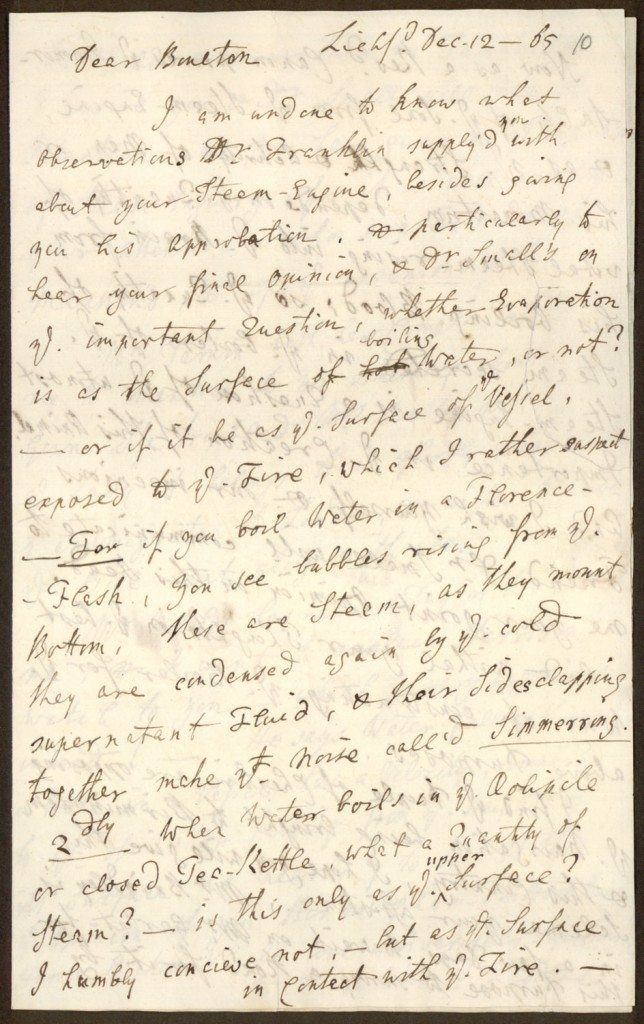 Lichf'd Dec. 12 — 65 10
Dear Boulton
I am undone to know what
observations Dr Franklin supply'd you with
about your Steem-Engine, besides giving
you his approbation. & perticularly to
hear your final opinion, & Dr. Small's on
ye. important Question, whether Evaporation
is as the Surface of hot boiling Water, or not?
— or if it be as ye. Surface of ye Vessel,
exposed to ye. Fire, which I rather suspect
— For if you boil Water in a Florence-
-Flask, you see bubbles rising from ye.
Bottom, these are Steem, as they mount
they are condensed again by ye. cold
supernatant Fluid, & their Sides clapping
together make yt. Noise call'd Simmerring.
2dly When Water boils in ye. Aolipile
or closed Tea-Kettle, what a Quantity of
Steam? — is this only as ye. upper Surface?
I humbly concieve not, — but as ye. Surface
in Contact with ye. Fire. —